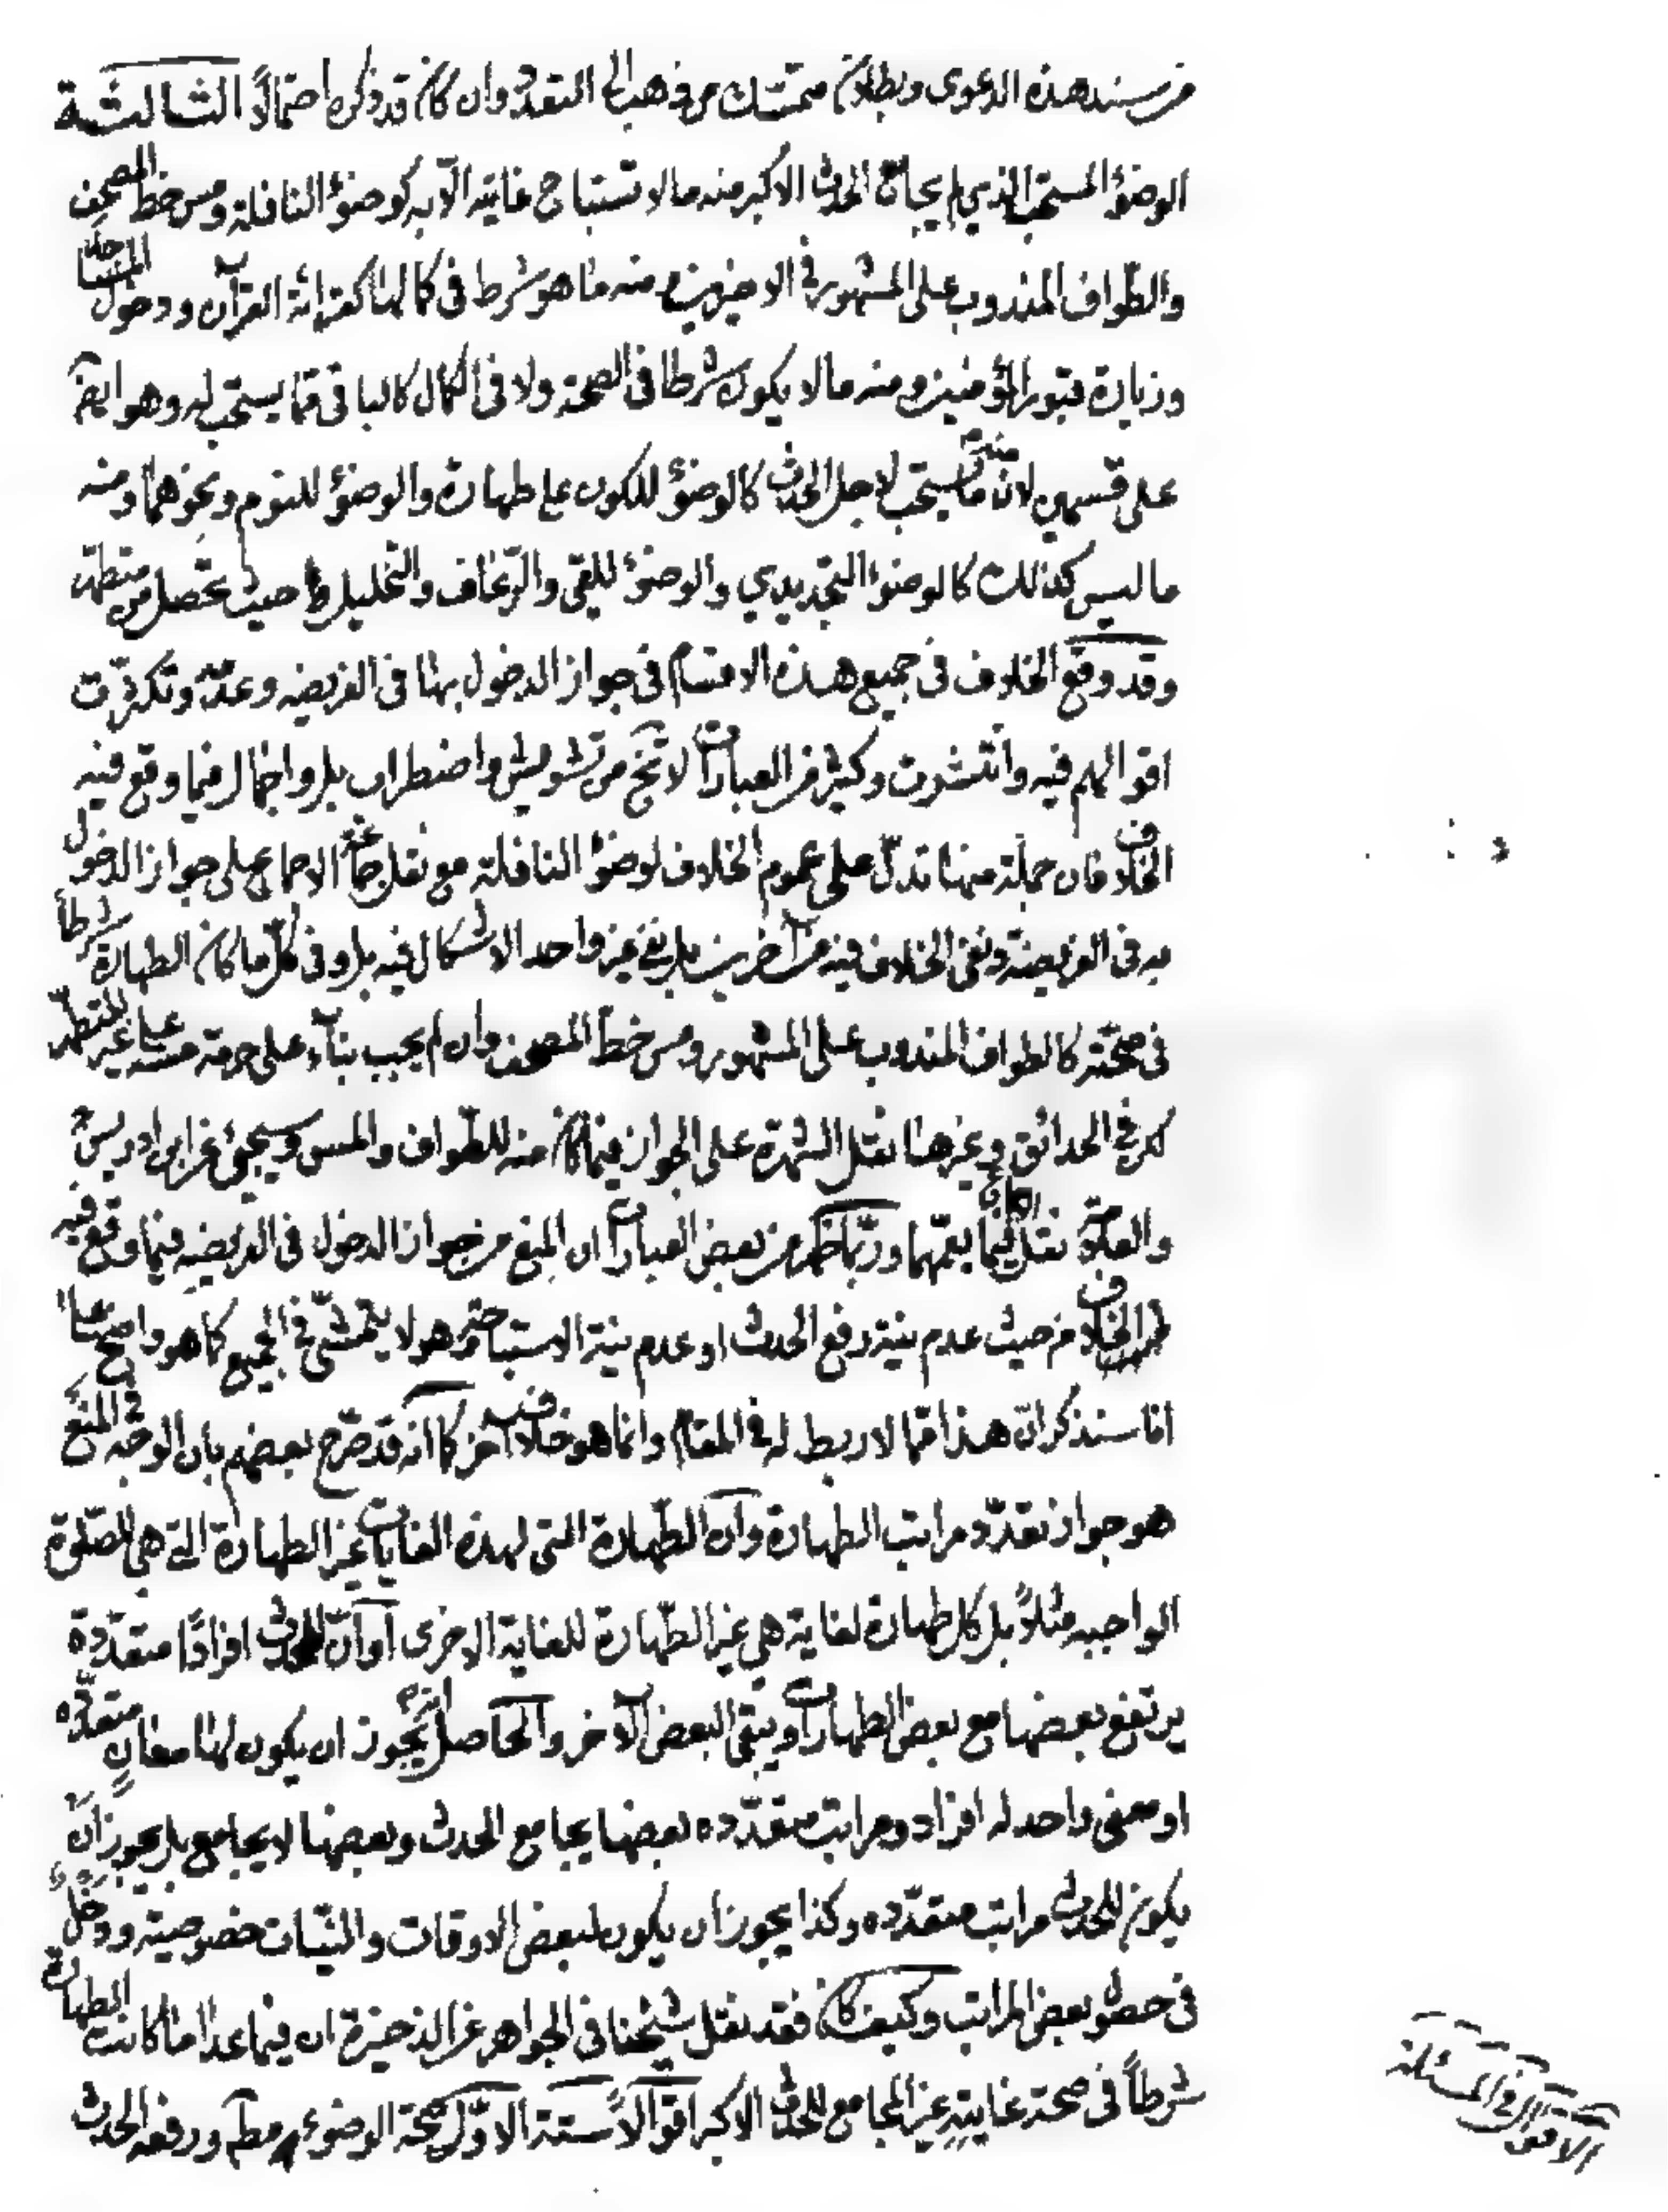 من سند هذه الدعوى وبطلان متمسك من ذهب الى التعدد وان كان قد ذكره احتمالاً الثالثة
الوضوء المستحب الذي لم يجامع الحدث الاكبر منه ما لا تستباح غايته الا به كوضوء النافلة ومس خط المصحف
والطواف المندوب على المشهور في الاخيرين ومنه ما هو شرط في كمالها كقرائة القرآن ودخول المساجد
وزيارة قبور المؤمنين ومنه ما لا يكون شرطا في الصحة ولا في الكمال كالباقي مما يستحب له وهو ايضا
على قسمين لان منه ما يستحب لاجل الحدث كالوضوء للكون على طهارة والوضوء للنوم ونحوهما ومنه
ما ليس كذلك كالوضوء التجديدي والوضوء للقئ والرعاف والتخليل حيث تحصل من متطهر
وقد وقع الخلاف في جميع هذه الاقسام في جواز الدخول بها في الفريضه وعدمه وتكثرت
اقوالهم فيه وانتشرت وكثير من العبارات لا تخ من تشويش واضطراب بل واجمال فيما وقع فيه
الخلاف فان جملة منها تدل على عموم الخلاف لوضوء النافلة مع نقل جماعة الاجماع على جواز الدخول
به في الفريضة ونفى الخلاف فيه من آخرين بل نفى غير واحد الاشكال فيه بل وفي كل ما كان الطهارة شرطاً
في صحته كالطواف المندوب على المشهور ومس خط المصحف وان لم يجب بناء على حرمة مسه على غير المتطهر
كل في الحدائق وغيرها نقل الشهرة على الجواز فيما كان منه للطواف والمس وسيجئ عن ابن ادريس
والعلامة نقل الاجماع فيما يعمهما وربما ظهر من بعض العبارات ان المنع من جواز الدخول في الفريضه فيما وقع فيه
الخلاف من حيث عدم نية رفع الحدث او عدم نية الاستباحة وهو لا يتمشى في الجميع كما هو واضح على
انا سنذكر ان هذا مما لا ربط له في المقام وانما هو خلاف آخر كما انه قد صرح بعضهم بان الوجه في المنع
هو جواز تعدد مراتب الطهارة وان الطهارة التى لهذه الغايات غير الطهارة التي هي للصلوة
الواجبه مثلاً بل كل طهارة لغاية هي غير الطهارة للغاية الاخرى او ان للحدث افرادًا متعددة
يرتفع بعضها مع بعض الطهارات ويبقى البعض الآخر والحاصل انه يجوز ان يكون لها معان متعدده
او معنى واحد له افراد ومراتب متعدده بعضها يجامع الحدث وبعضها لا يجامع بل يجوز ان
يكون للحدث مراتب متعدده وكذا يجوز ان يكون لبعض الاوقات والنيات خصوصية ودخل
في حصول بعض المراتب وكيف كان فقد نقل شيخنا في الجواهر عن الذخيرة ان فيما عدا ما كانت الطهارة
شرطاً في صحة غايته غير المجامع للحدث الاكبر اقوالاً ستة الاول صحة الوضوء مطم ورفعه الحدث
الاقوال في المسئلة